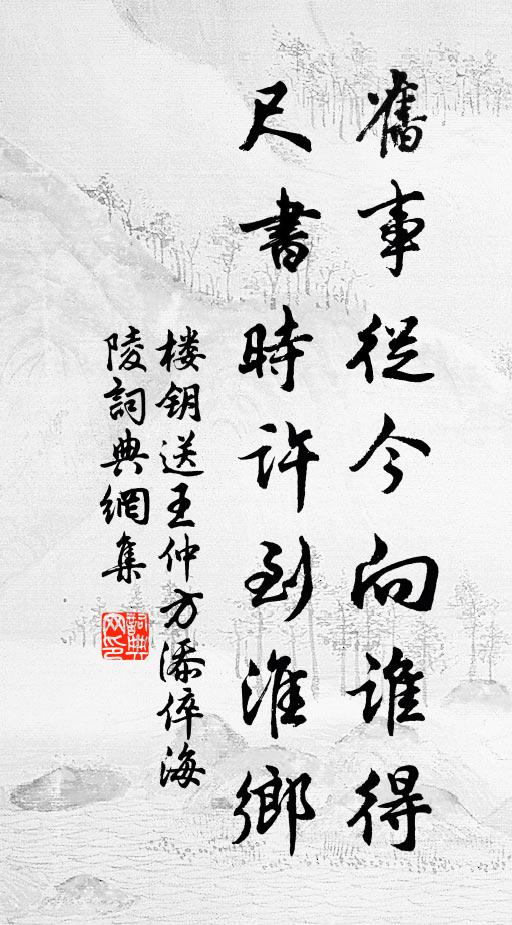 舊事從今向誰得
尺書時許到淮鄉
楼钥送王仲方添倅海
陵詞典網集
詞典网印